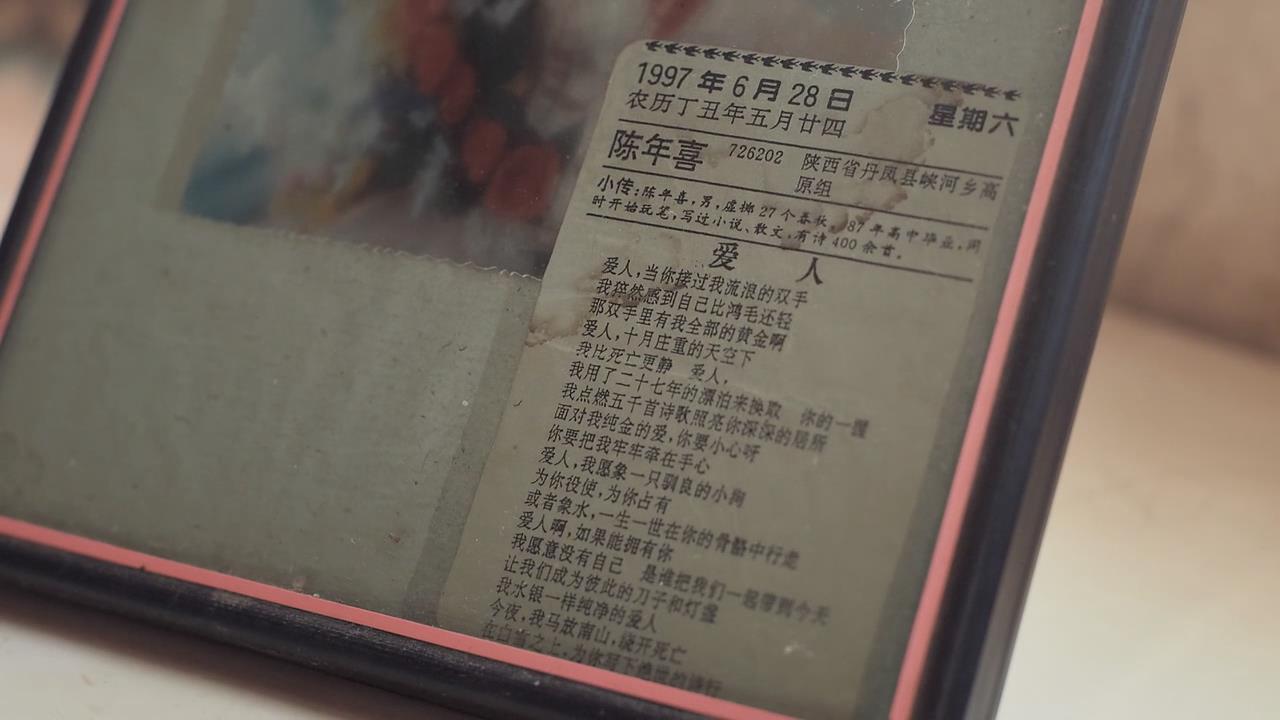 1997年6月28日 星期六
农历丁丑年五月廿四
陈年喜 726202 陕西省丹凤县峡河乡高
原组
小传:陈年喜,男,虚掷27个春秋,87年高中毕业,闲
时开始玩笔,写过小说、散文,有诗400余首。
爱 人
爱人,当你接过我流浪的双手
我猝然感到自己比鸿毛还轻
那双手里有我全部的黄金啊
爱人,十月庄重的天空下
我比死亡更静 爱人,
我用了二十七年的漂泊来换取 你的一握
我点燃五千首诗歌照亮你深深的居所
面对我纯金的爱,你要小心呀
你要把我牢牢牵在手心
爱人,我愿象一只驯良的小狗
为你役使,为你占有
或者象水,一生一世在你的骨骼中行走
爱人啊,如果能拥有你
我愿意没有自己 是谁把我们一起带到今天
让我们成为彼此的刀子和灯盏
我水银一样纯净的爱人
今夜,我马放南山,绕开死亡
在白雪之上,为你写下绝世的诗行